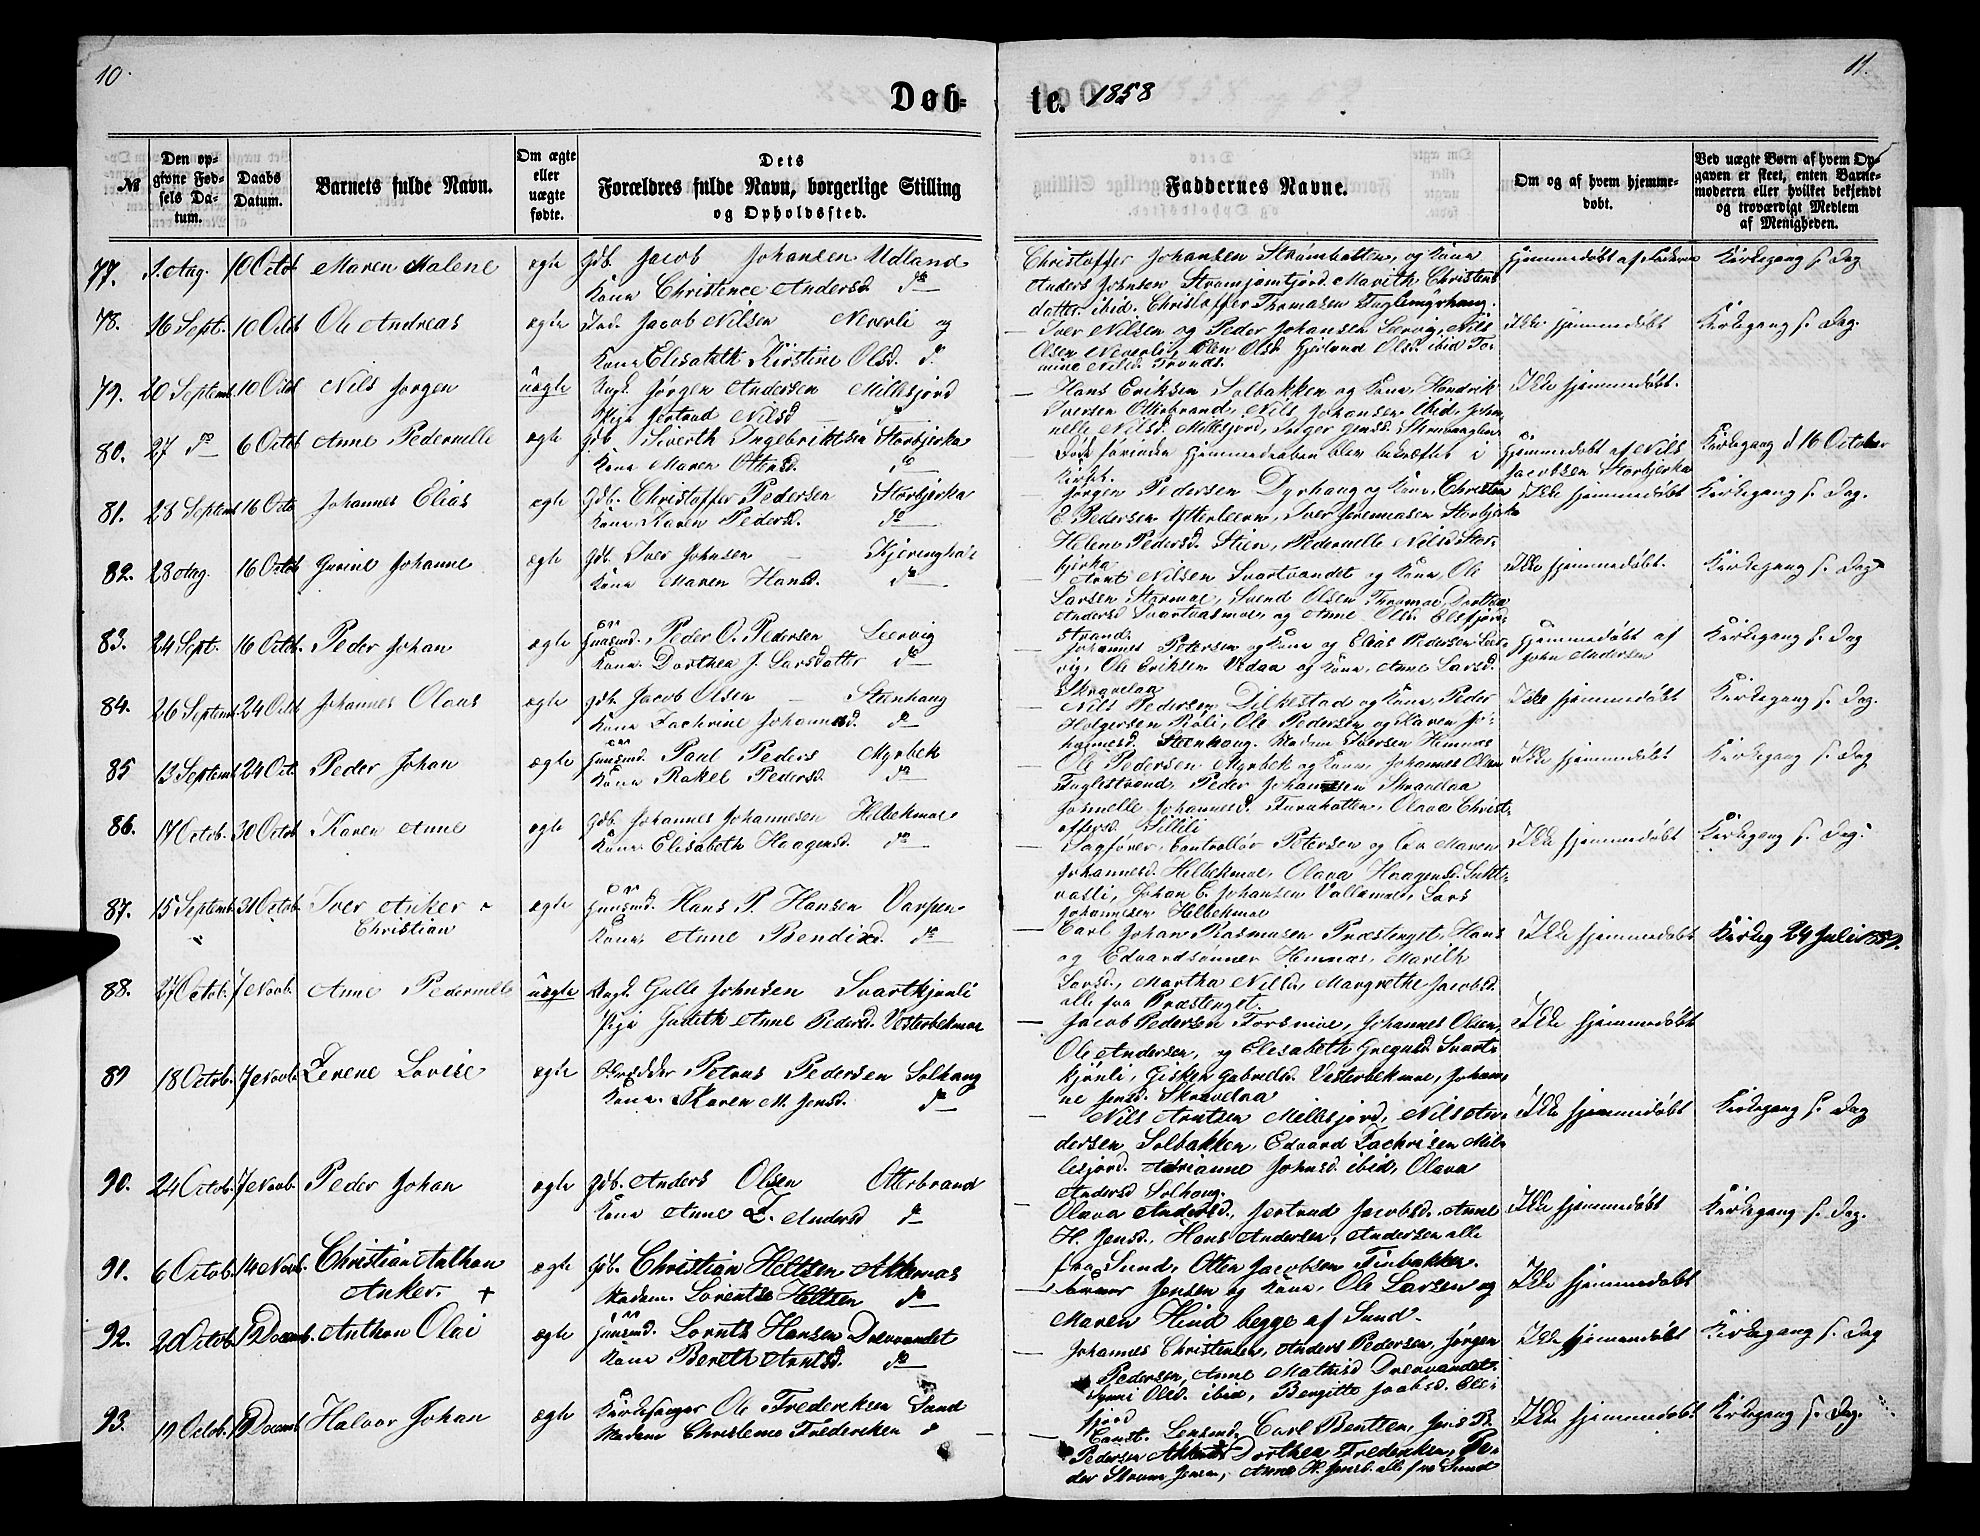 10.
11.
Døb-
te. 1858
№
Den op-
givne Fød-
sels Da-
tum.
Daabs
Datum.
Barnets fulde Navn.
Om ægte
eller
uægte
fødte.
Dets
Forældres fulde Navn, borgerlige Stilling
og Opholdssted.
Faddernes Navne.
Om og af hvem hjemme-
døbt.
Ved uægte Børn af hvem Op-
gaven er skeet, enten Barne-
moderen eller hvilket bekjendt
og troværdigt Medlem
af Menigheden.
77. 1. Aug. 10 Octob Maren Malene ægte Gdb. Jacob Johansen Udland
Kone Christence Andersd. do
Christoffer Johansen Strømbotten, og Kone
Anders Johnsen Marith Christens
datter ibid. Christoffer Thomasen
Hjemmedøbt af Faderen Kirkegang s. Dag
78. 16 Sept. 10 Octob Ole Andreas ægte Ind. Jacob Nilsen Neverli og
Kone Elisabeth Kirstine Olsd. do
Iver Nilsen og Peder Johansen Leervig, Nils
Olsen Neverli, Olsd. ibid
Ikke hjemmedøbt Kirkegang s. Dag.
79. 20 Septemb 10 Octob Nils Jørgen uægte Ungk. Jørgen Andersen Millesjord
Pige Gertrud Nilsd do
Hans Eriksen Solbakken og Kone, Hendrik
Iversen Otterbrand, Nils Johansen ibid,
Nilsd. Millesjord,
Ikke hjemmedøbt.
80. 27 do 6 Octob Anne Pedernelle ægte Gdb. Siverth Ingebrigtsen Storbjerka
Kone Maren Ottersd. do
Døde førinden Hjemmedaaben blev bekræftet i
Kirken.
Hjemmedøbt af Nils
Jacobsen Storbjerka
Kirkegang d 16 October
81. 28 Septemb 16 Octo Johannes Elias ægte Gdb. Christoffer Pedersen Storbjerka
Kone Karen Pedersd. do
Jørgen Pedersen Dyrhaug og Kone, Christen
E. Pedersen Ytterleeren, Iver Storbjerka
Helene Pedersd. Stien, Pedernelle Nilsd Stor-
bjerka
Ikke hjemmedøbt Kirkegang s. Dag.
82. 28 Aug. 16 Octob Gurine Johanne ægte Gdb. Iver Johnsen
Kone Maren Hansd. do
Arnt Nilsen Svartvandet og Kone, Ole
Larsen Stormoe, Svend Olsen Dorthea
Andersd og Anne Olsd.
strand.
Ikke hjemmedøbt. Kirkegang s. Dag
83. 24 Sept. 16 Octob. Peder Johan ægte Huusmd. Peder O. Pedersen Leervig
Kone Dorthea J. Larsdatter do
Johannes Petersen og Kone og Elias Pedersen Leer-
vig, Ole Eriksen Vedaa og Kone, Anne Larsd.
Skravelaa
Hjemmedøbt af
John Andersen
Kirkegang s. Dag
84. 26 Septemb. 24 Octob Johannes Olaus ægte Gdb. Jacob Olsen Steenhaug
Kone Zachrine Johannesd. do
Nils Pedersen Dilkestad og Kone, Peder
Holgersen Røli, Ole Pedersen og Karen Jo-
hannesd. Steenhaug. Madm Iversen Hemnes
Ikke hjemmedøbt Kirkegang s. Dag.
85 13 Septemb. 24 Oct. Peder Johan ægte Huusmd. Paul Peders Myrbek
Kone Rakel Pedersd. do
Ole Pedersen Myrbek og Kone, Johannes Olsen
Fuglestrand, Peder Johansen Skravelaa
Johannesd. Furuhatten, Olava Christ-
offersd. Lillili
Ikke hjemmedøbt Kirkegang s. Dag
86. 17 Octob. 30 Octob Karen Anne ægte Gdb. Johannes Johannesen Helbekmoe
Kone Elisabeth Haagensd. do
Sagfører, Controllør Petersen og Maren
Johannesd. Helbekmoe, Olava Haagensd.
Johan E. Johansen Lars
Johannesen Helbekmoe
Ikke hjemmedøbt Kirkegang s. Dag.
87. 15 Septemb. 31 Octob. Iver Anker
Christian
ægte Huusmd. Hans P. Hansen Varpen
Kone Anne Bendixd. do
Carl Johan Rasmusen Præstenget, Hans
og Edvard Hemnes, Marith
Larsd., Martha Nilsd., Margrethe Jacobsd.
alle fra Præstenget.
Ikke hjemmedøbt Kirkeg 24 Juli 1859.
88. 27 Octob. 7 Novb. Anne Pedernelle uægte Ungk. Gulle Johnsen Svartkjønli
Pige Judith Anne Pedersd. Vesterbekmoe
Jacob Pedersen Forsmoe, Johannes Olsen,
Ole Andersen, og Elesabeth Svart-
kjønli, Gisken Gabrielsd. Vesterbekmoe, Johan-
ne Jensd. Skravelaa
Ikke hjemmedøbt
89 18 Octob. 7 Novb. Zerene Lovise ægte Petrus Pedersen Solhaug
Kone Karen M. Jensd. do
Nils Arntsen Millesjord, Nils An-
dersen Solbakken, Edvard Zachrisen Mil-
lesjord. Adrianne Johnsd. ibid, Olava
Andersd Solhaug.
Ikke hjemmedøbt Kirkegang s. Dag
90. 24 Octob. 7 Novb. Peder Johan ægte Gdb. Anders Olsen Otterbrand
Kone Anne Z. Andersd do
Olava Andersd., Gertrud Jacobsd. Anne
H. Jensd., Hans Andersen, Andersen alle
fra Sund, Otter Jacobsen Finbakken.
Ikke hjemmedøbt Kirkegang s. Dag.
91. 6 Octob. 14 Novb. Christian Anthon
Anker. +
ægte Gdb. Christian Heltzen Akkernæs
Madam Lorentse Heltzen do
Jensen og Kone, Ole Larsen og
Maren Hind begge af Sund.
Ikke hjemmedøbt
92. 2 Octob. Decemb. Anthon Olai ægte Huusmd. Lornts Hansen Drevvandet
Kone Bereth Arntsd. do
Johannes Christensen, Anders Pedersen, Jørgen
Pedersen, Anne Mathisd Drevvandet
Olsd. ibid, Bergitte
fjord
Ikke hjemmedøbt Kirkegang s. Dag
93. 19 Octob. Decemb Halvor Johan ægte Kirkesanger Ole Frederiksen Sund
Madam Christense Frederiksen do
Const. Lensmd. Carl Bentzen, Jens P.
Pedersen Dorthea Frederiksen, Pe-
der Strøm Jensen, Anne H. Jensd. alle fra Sund
Ikke hjemmedøbt Kirkegang s. Dag.